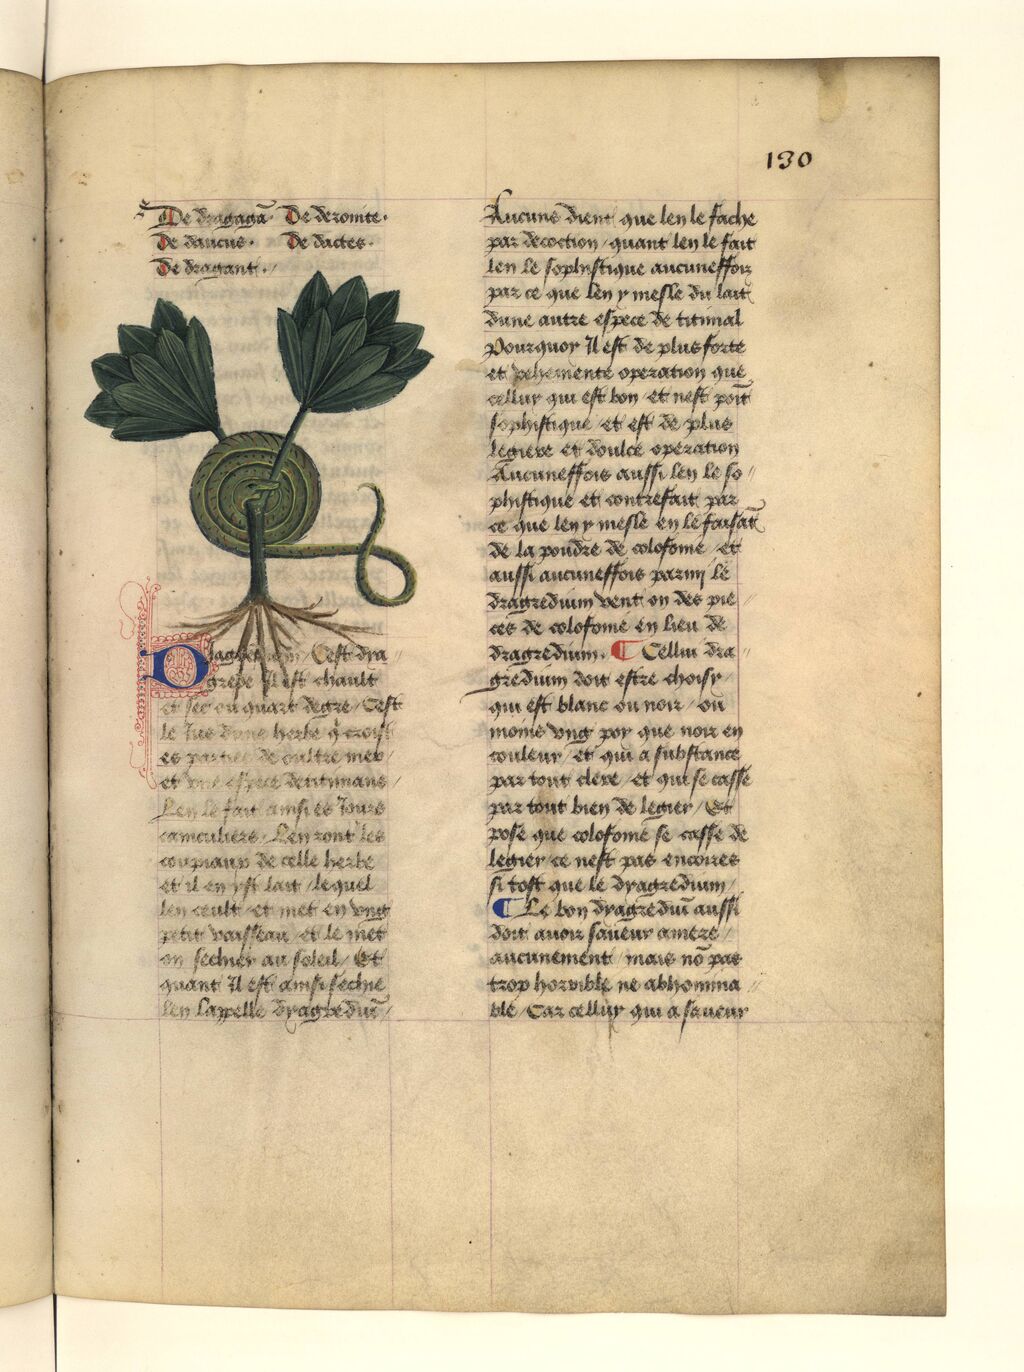 130
De dragaga᷃. De deronite.
De daucus. De dactes.
De dragant.
Diagridium / Cest dra
grede Il est chault
et sec ou quart degre / Cest
le Jus dune herbe q̃ croist
es parties de oultre mer
et vne espece
Len le fait ainsi es Jours
caniculiers. Len ront les
coupeaux de celle herbe
et il en yst lait / lequel
len ceult / et met en vng
petit vaisseau / et le met
on sechier au soleil / Et
quant Il est ainsi sechie
len lappelle dragreduı̃ /
Aucuns dient que len le fache
par decoction / quant len le fait
len le sophistique aucuneffois
par ce que len y mesle du lait
dune autre espece de titimal
Pourquoy Il est de plus forte
et vehemente operation que
cellui qui est bon / et nest poĩt
sophistique / et est de plus
legiere et doulce operation
Aucuneffois aussi len le so〃
phistique et contrefait par
ce que len y mesle en le faisãt
de la poudre de colofonie / et
aussi aucuneffois parmj le
dragredium vent on des pie
ces de colofonie en lieu de
dragredium. ¶ Cellui dra〃
gredium doit estre choisy /
qui est blanc ou noir / ou
moins vng poy que noir en
couleur / et qui a substance
par tout clere / et qui se casse
par tout bien de legier / Et
pose que colofonie se casse de
legier / ce nest pas encores
si tost que le dragredium /
¶ Le bon dragreduĩ aussi
doit auoir saueur amere /
aucunement / mais nõ pas
trop horrible ne abhomina〃
ble / Car celluy qui a saueur